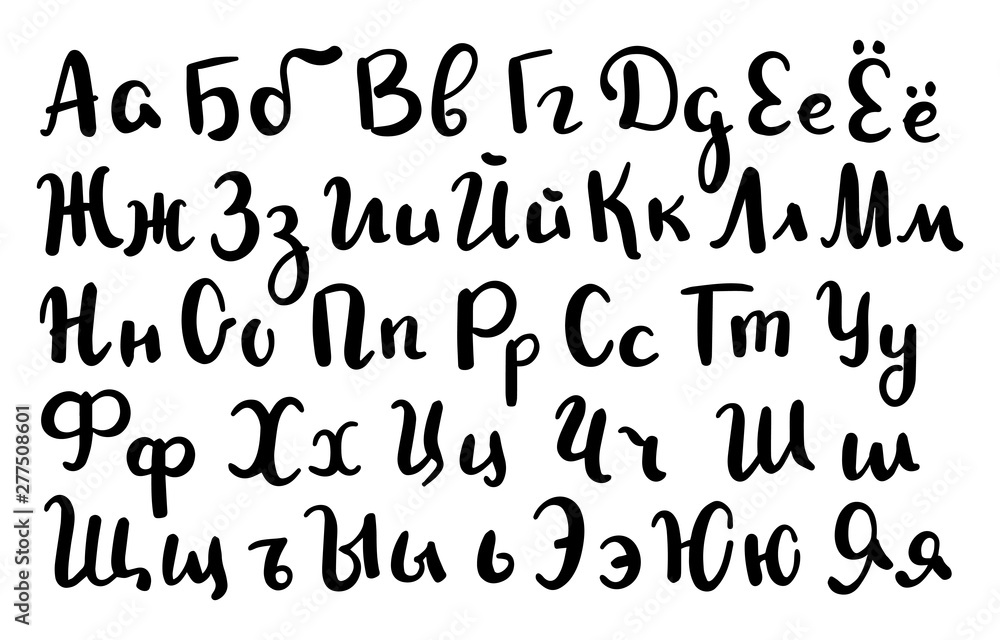 Аа Бб Вв Гг Дд Ее Ёё
Жж Зз Ии Йй Кк Лл Мм
Нн Оо Пп Рр Сс Тт Уу
Фф Хх Цц Чч Шш
Щщ ъ Ыы ь Ээ Юю Яя
Adobe Stock | #277508601